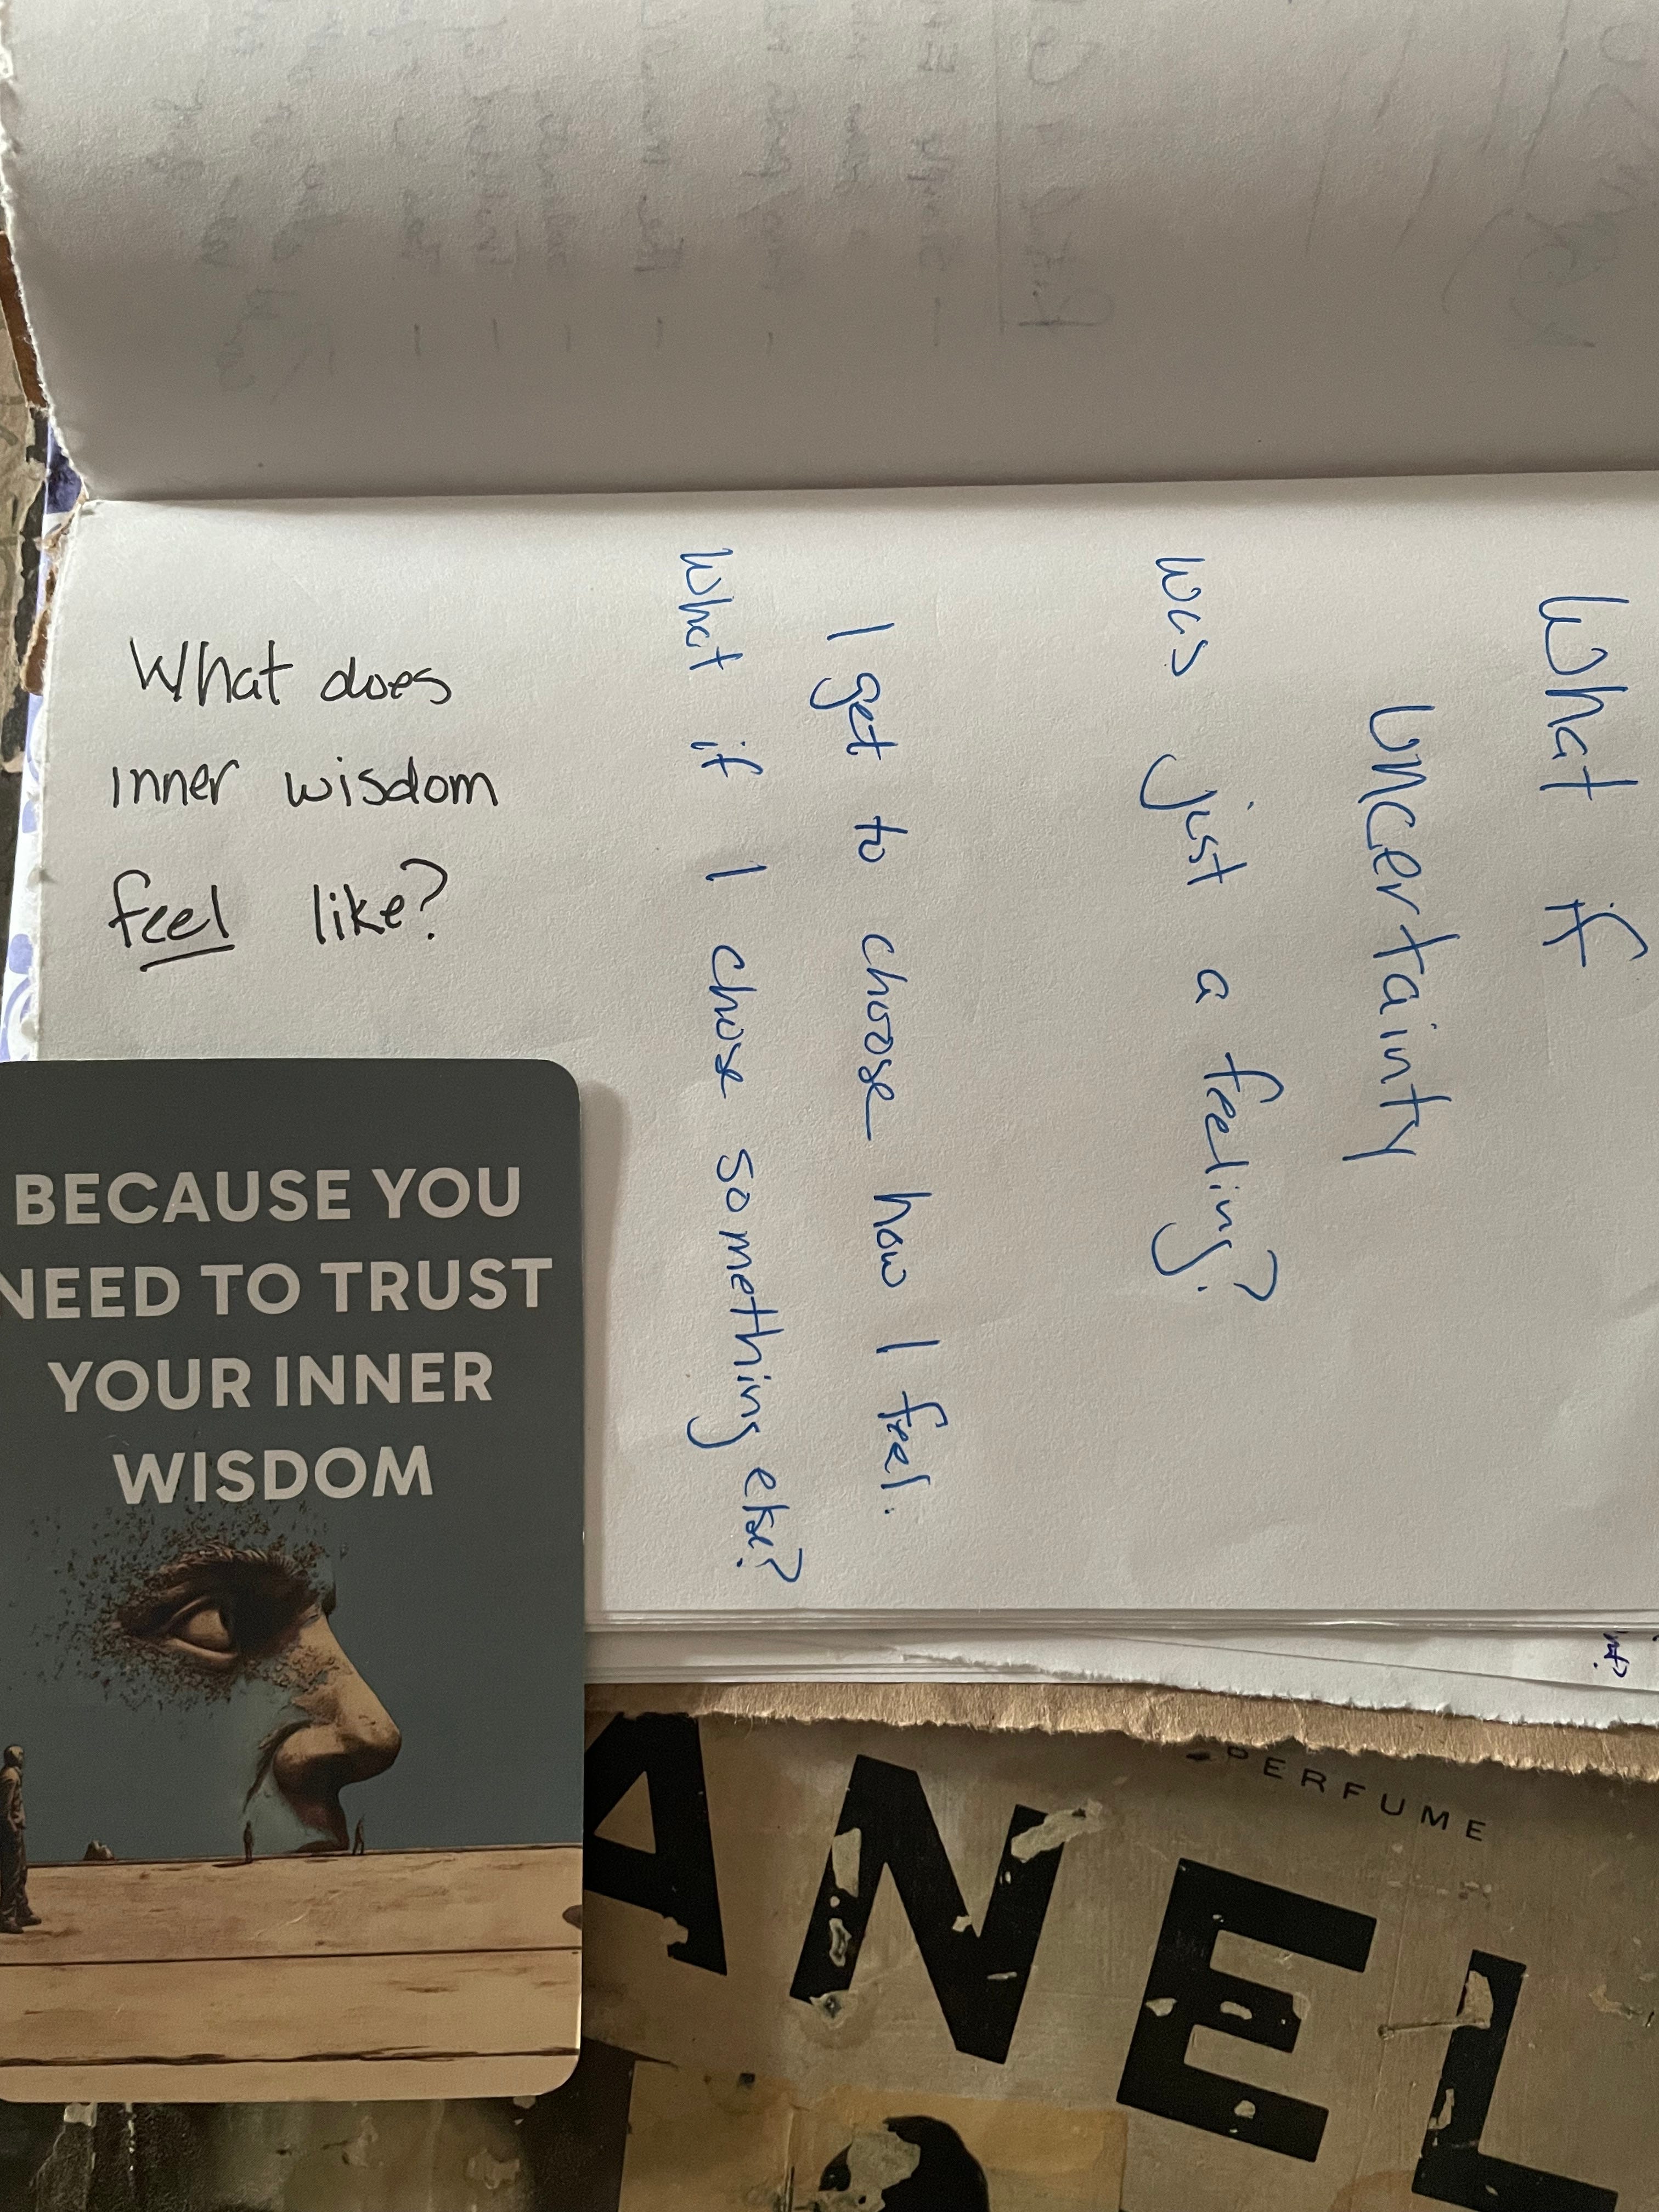 What if
Uncertainty
was just a feeling?
I get to choose how I feel.
What if I chose something else?
What does
inner wisdom
feel like?
BECAUSE YOU
NEED TO TRUST
YOUR INNER
WISDOM
PERFUME
ANEL